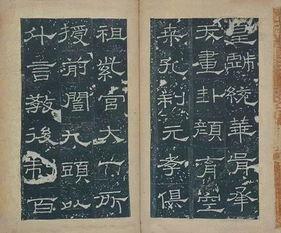 皇戲統華胥承
天畫卦顏育空
桑孔制元孝俱
祖紫宮大一所
授前闓九頭以
什言教後制百